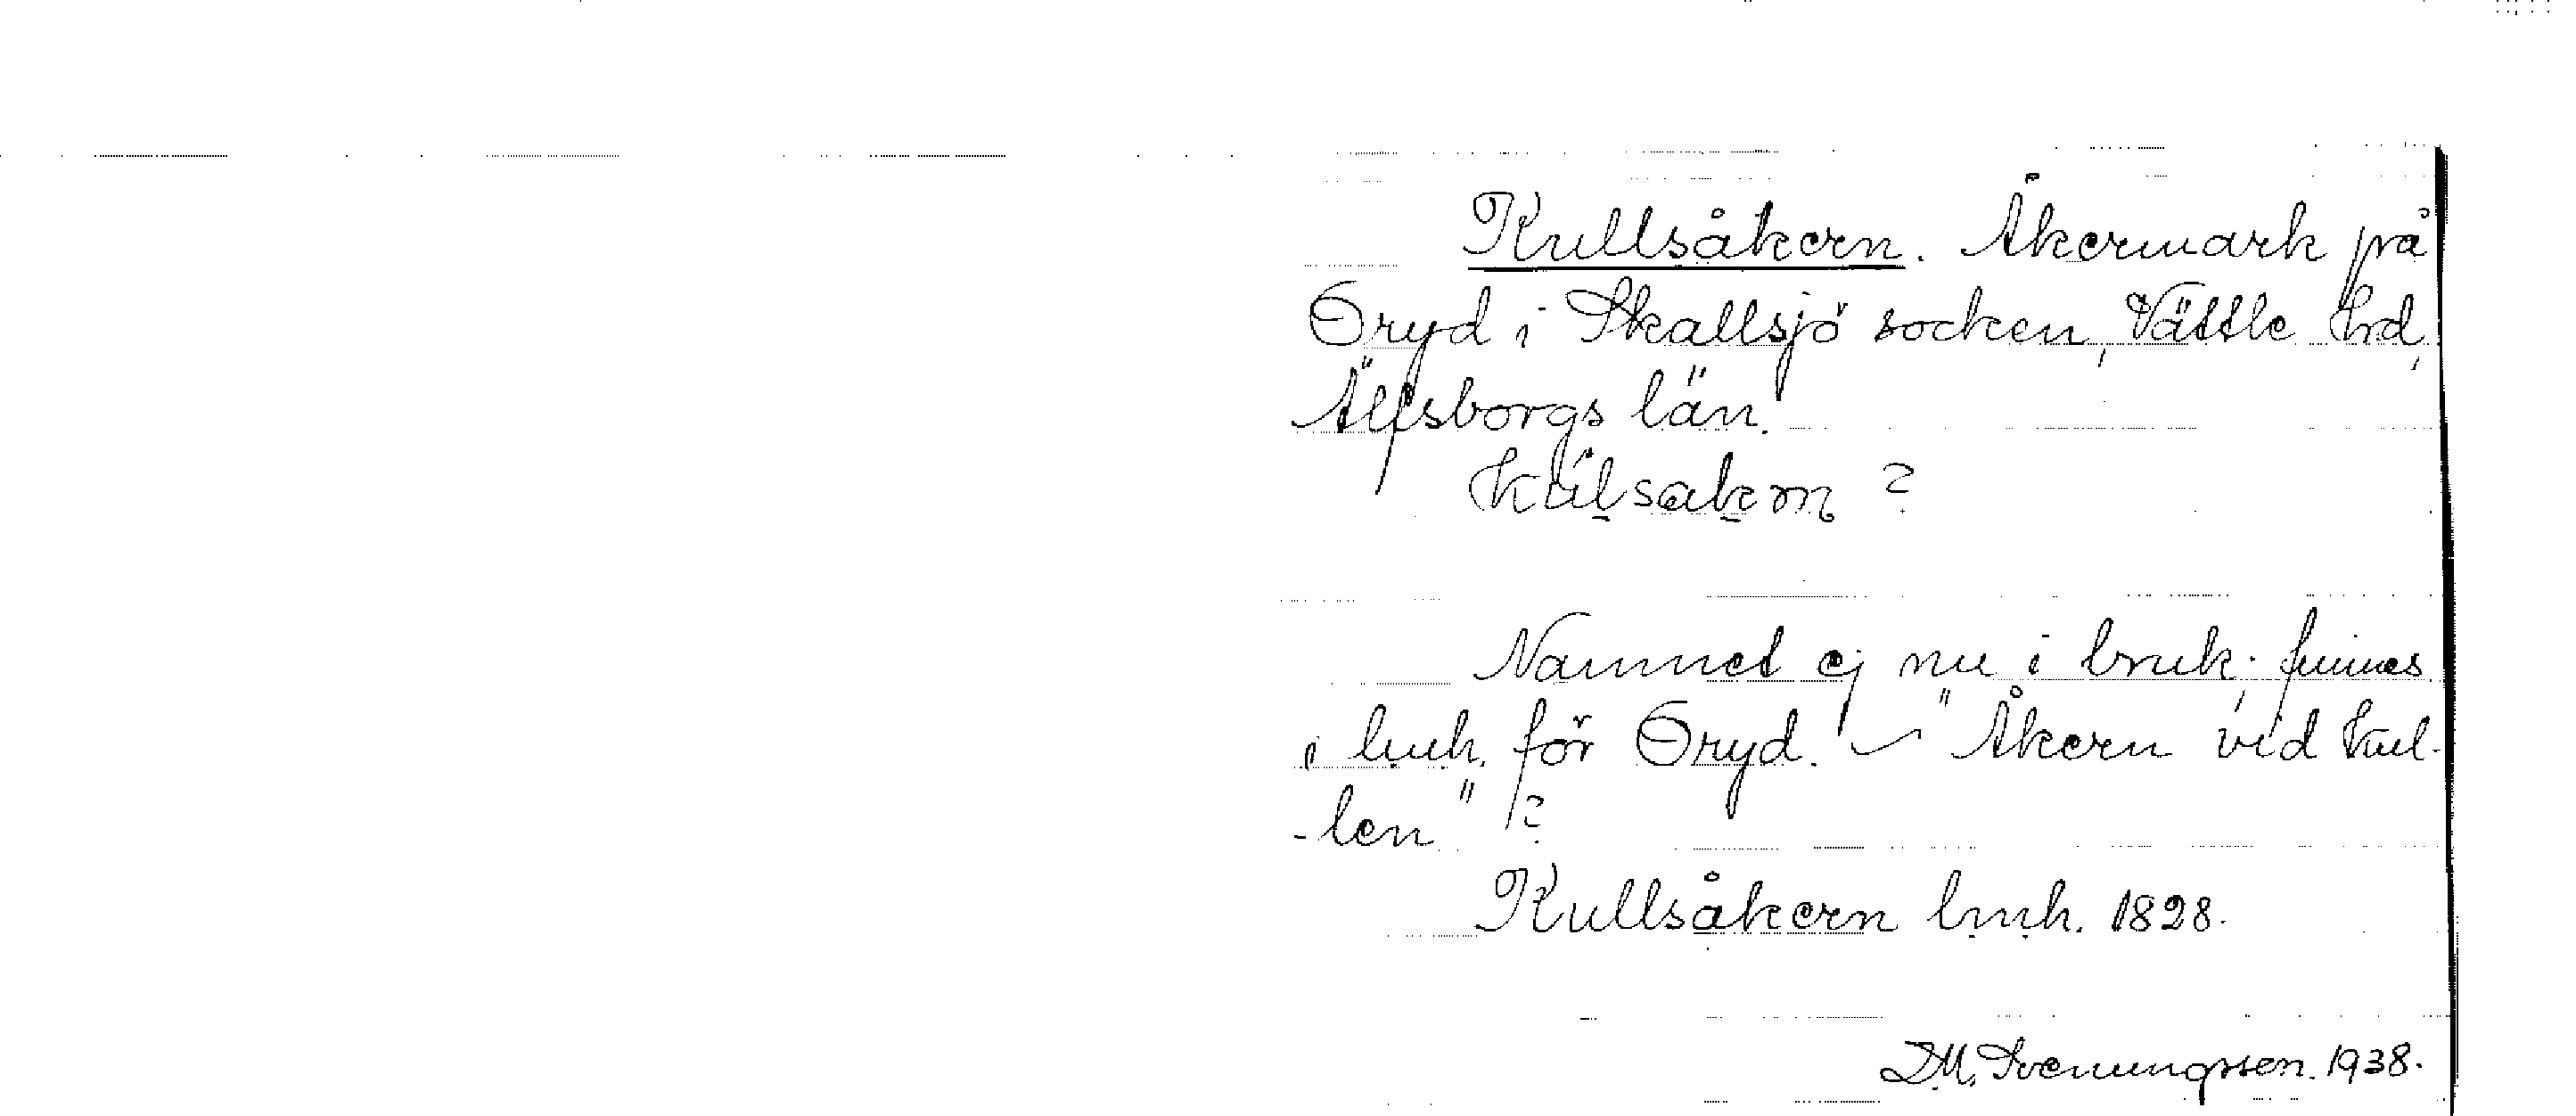 Kullsåkern. Åkermark på
Öryd i Skallsjö socken, Vättle hrd,
Älfsborgs län.
Kúlsakern ?
Namnet ej nu i bruk; finnes
i lmh. för Öryd. "Åkern vid kul-
-len" ?
Kullsåkern lmh. 1828.
D.M. Svenungsson. 1938.